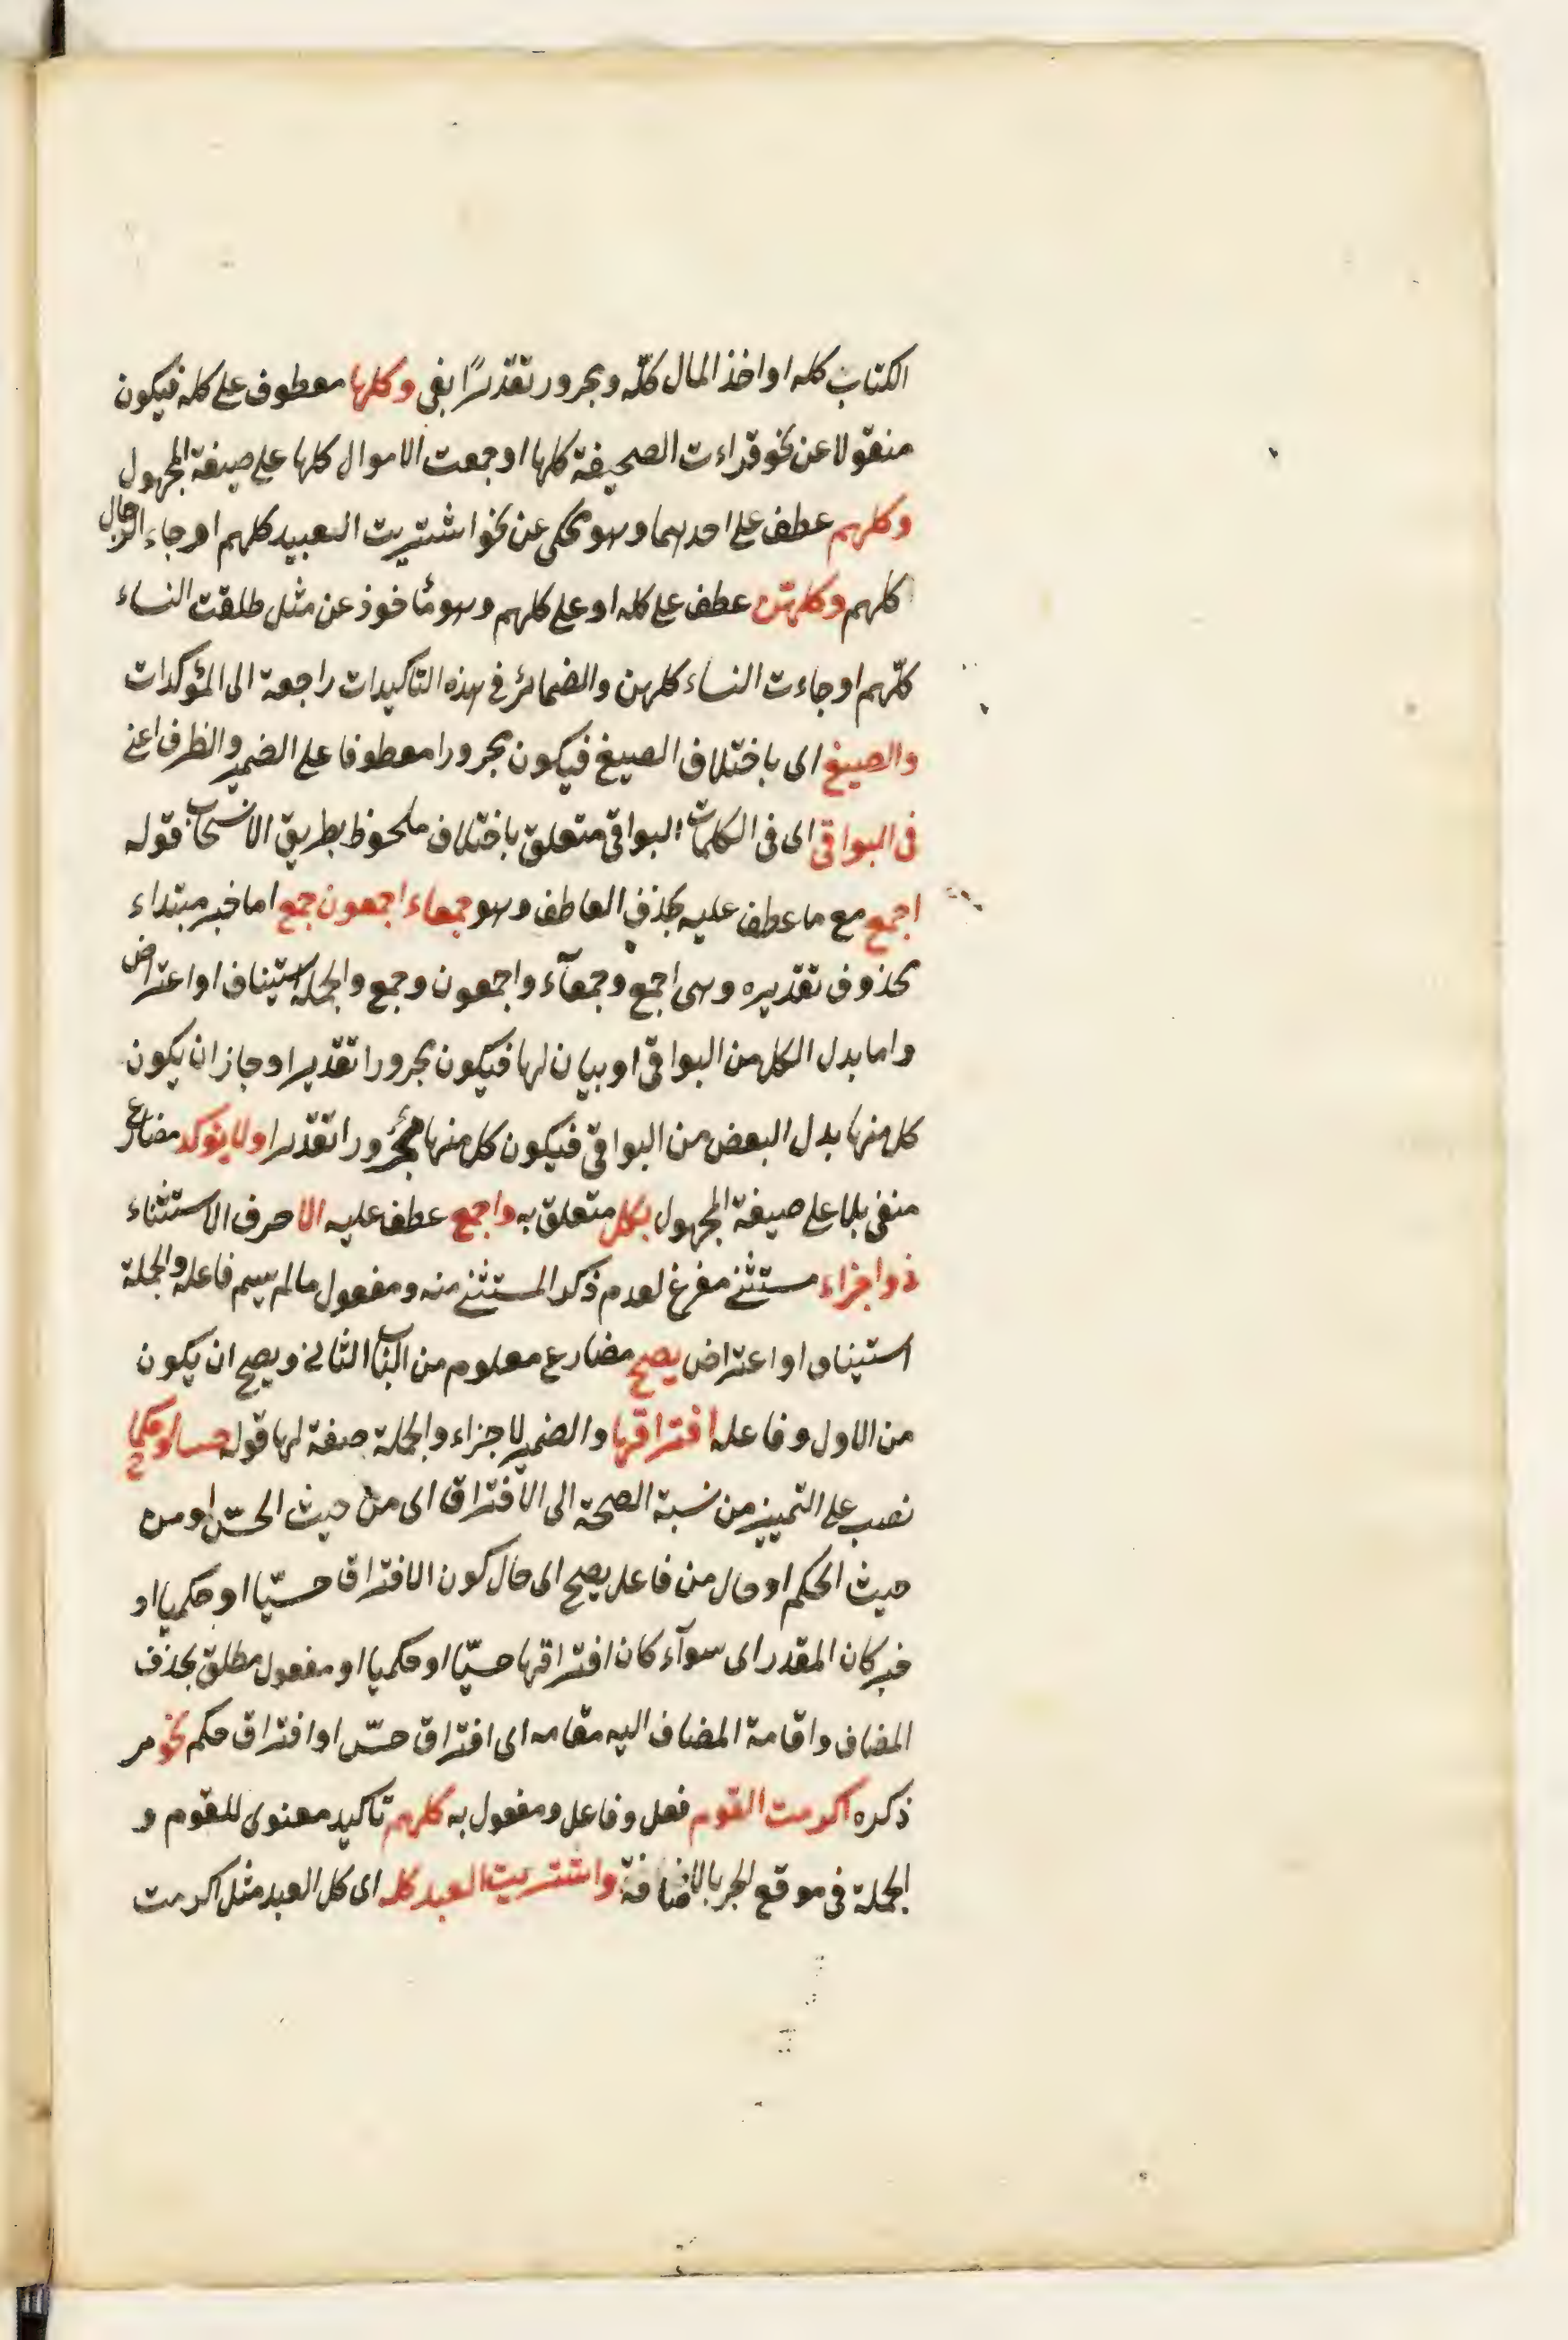 الكتاب كله او اخذ المال كلّه ومجرور تقديرًا بفى وكلها معطوف على كله فيكون
منقولا عن نحو قراءت الصحيفة كلها او جمعت الاموال كلها على صيغة المجهول
وكلهم عطف على احدهما وهو محكى عن نحو اشتريت العبيد كلهم او جاء الرجال
كلهم وكلهنّ عطف على كله او على كلهم وهو مأخوذ عن مثل طلقت النساء
كلّهم او جاءت النساء كلهن والضمائر فى هذه التاكيدات راجعة الى المؤكدات
والصيغ اى باختلاف الصيغ فيكون مجرورا معطوفا على الضمير والظرف اعنى
فى البواقى اى فى الكلمات البواقى متعلق باختلاف ملحوظ بطريق الانسحاب قوله
اجمع مع ما عطف عليه بحذف العاطف وهو جمعاء اجمعون جمع اما خبر مبتداء
محذوف تقديره وهى اجمع وجمعآء واجمعون وجمع والجملة استيناف او اعتراض
واما بدل الكل من البواقى او بيان لها فيكون مجرورا تقديرا وجاز ان يكون
كل منها بدل البعض من البواقى فيكون كل منها مجرورا تقديرا ولا يؤكد مضارع
منفى بلا على صيغة المجهول بكل متعلق به واجمع عطف عليه الا حرف الاستثناء
ذو اجزاء مستثنى مفرغ لعدم ذكر المستثنى منه ومفعول مالم يسم فاعله والجملة
استيناف او اعتراض يصح مضارع معلوم من الباب الثانى ويصح ان يكون
من الاول وفاعله افتراقها والضمير لاجزاء والجملة صفة لها قوله حسا او حكما
نصب على التمييز من نسبة الصحة الى الافتراق اى من حيث الحسّ او من
حيث الحكم او حال من فاعل يصح اى حال كون الافتراق حسّيا او حكميا او
خبر كان المقدر اى سوآء كان افتراقها حسّيا او حكميا او مفعول مطلق بحذف
المضاف واقامة المضاف اليه مقامه اى افتراق حسّ او افتراق حكم نحو مر
ذكره اكرمت القوم فعل وفاعل ومفعول به كلهم تاكيد معنوى للقوم و
الجملة فى موقع الجر بالاضافة واشتريت العبد كله اى كل العبد مثل اكرمت